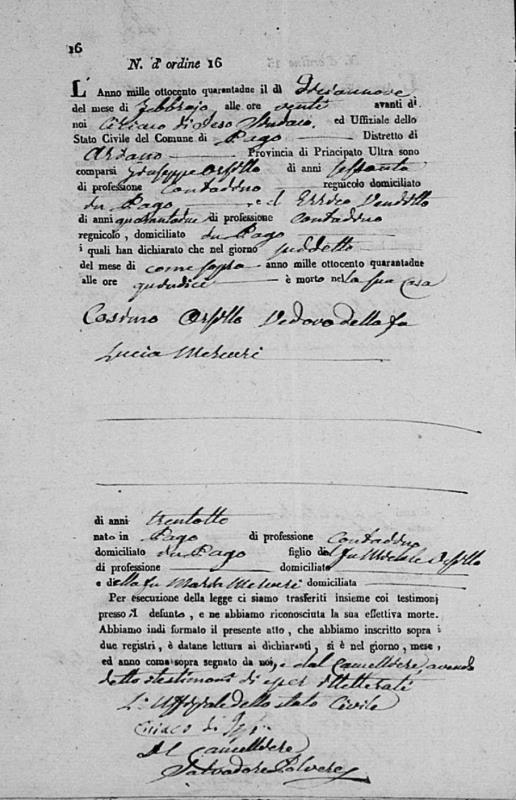 16
N. d'ordine 16
L' Anno mille ottocento quarantadue il dì Diciannove
del mese di Febbrajo alle ore venti avanti di
noi Ciriaco di Peso Sindaco, ed Uffiziale dello
Stato Civile del Comune di Pago Distretto di
Ariano Provincia di Principato Ultra sono
comparsi Giuseppe Orsillo di anni sessanta
di professione Contadino regnicolo domiciliato
in Pago e d Errico Venditto
di anni quarantadue di professione Contadino
regnicolo, domiciliato in Pago
i quali han dichiarato che nel giorno suddetto
del mese di come sopra anno mille ottocento quarantadue
alle ore quindici è morto nella sua casa
Cosimo Orsillo Vedovo della fu
Lucia Mercuri
di anni trentotto
nato in Pago di professione Contadino
domiciliato in Pago figlio del fu Michele Orsillo
di professione domiciliato
e della fu Maria Mercuri domiciliata
Per esecuzione della legge ci siamo trasferiti insieme coi testimonj
presso il defunto, e ne abbiamo riconosciuta la sua effettiva morte.
Abbiamo indi formato il presente atto, che abbiamo inscritto sopra i
due registri, è datane lettura ai dichiaranti, si è nel giorno, mese,
ed anno come sopra segnato da noi, e dal Cancelliere, avendo
detto i testimonj di esser illetterati
L'Uffiziale dello stato Civile
Ciriaco di
Il Cancelliere
Salvadore Polvere